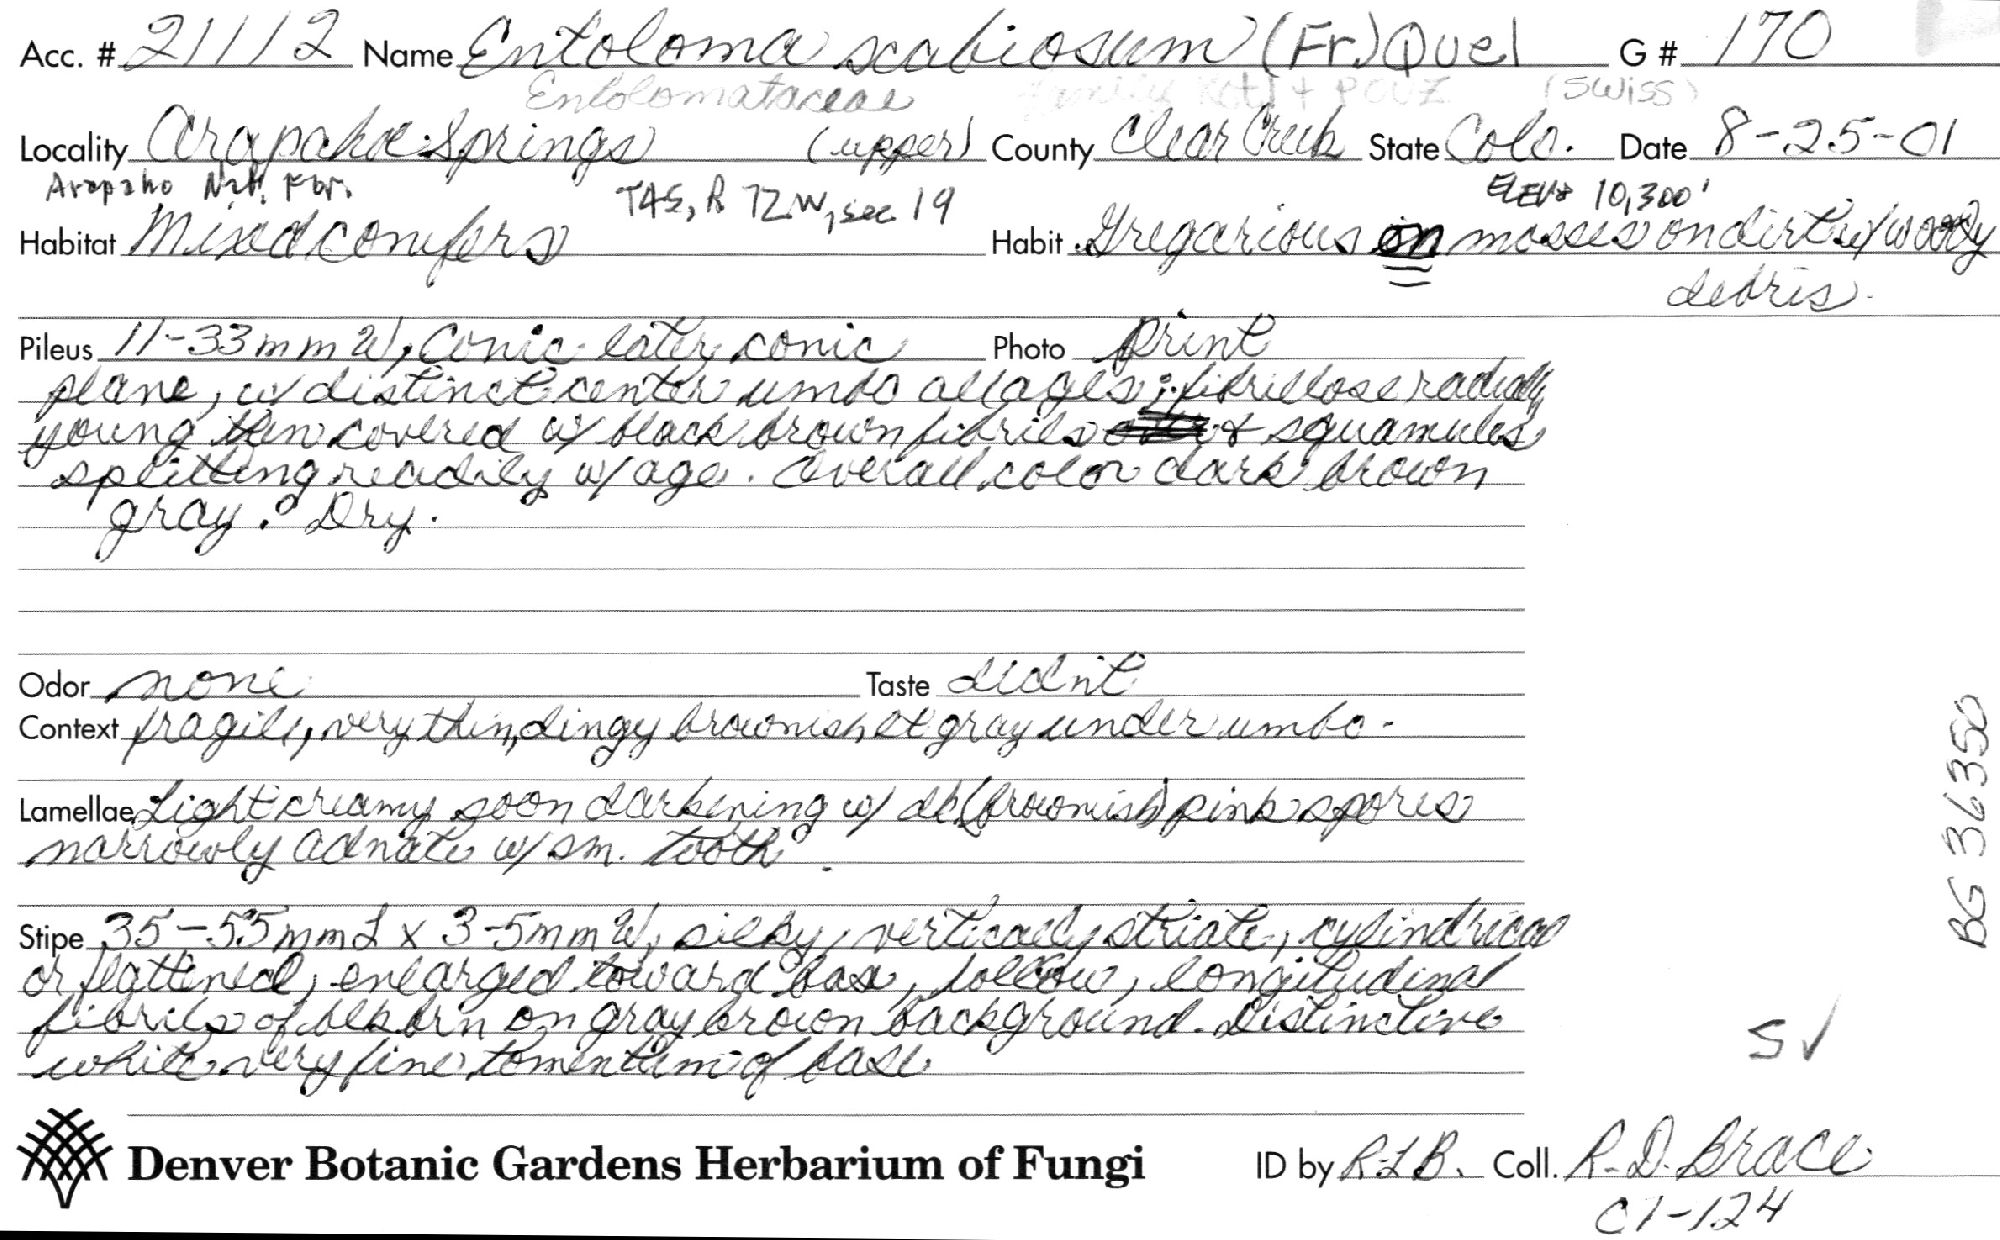 Acc. # 21112 Name Entoloma scabiosum (Fr.) Quel G # 170
Entolomataceae family (Swiss)
Locality Arapahoe Springs (upper) County Clear Creek State Colo. Date 8-25-01
Arapaho Nat. For. T4S, R 72W, sec 19 ELEV. 10,300'
Habitat Mixed conifers Habit Gregarious in mosses on dirt w/ woody
debris.
Pileus 11-33mm W, Conic later conic Photo print
plane, w/ distinct center umbo all ages; fibrillose radially
young then covered w/ black brown fibrils or squamules
splitting readily w/ age. Overall color dark brown
gray. Dry.
Odor none Taste didn't
Context fragile, very thin, dingy brownish lt gray under umbo.
Lamellae Light creamy soon darkening w/ dk (brownish) pink spores
narrowly adnate w/ sm. tooth.
Stipe 35-55mm L x 3-5mm W, silky, vertically striate, cylindrical
or flattened, enlarged toward base, hollow, longitudinal
fibrils of blk brn on gray brown background. Distinctive
white very fine tomentum of base
BG 36350
S ✓
Denver Botanic Gardens Herbarium of Fungi ID by RLB. Coll. R. D. Brace
C1-124